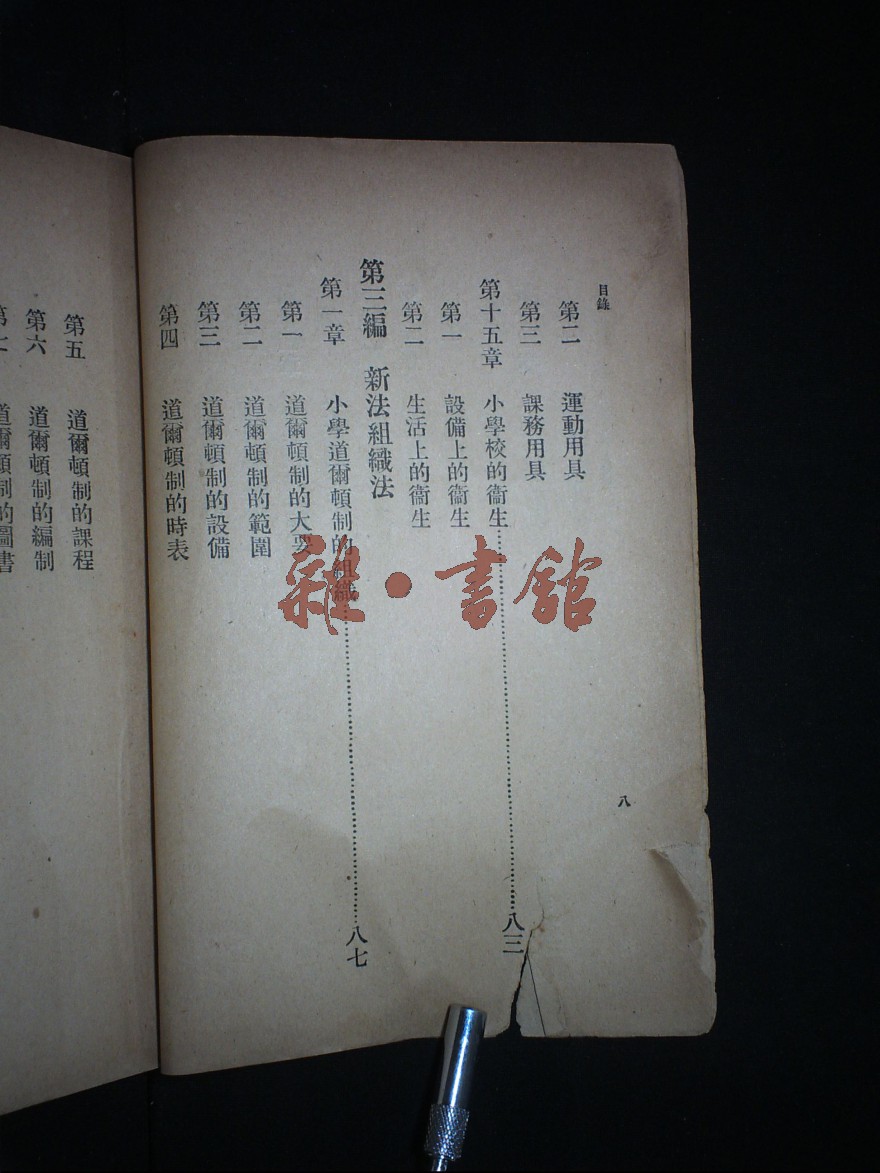 目錄
第二 運動用具
第三 課務用具
第十五章 小學校的衞生……八三
第一 設備上的衞生
第二 生活上的衞生
第三編 新法組織法
第一章 小學道爾頓制的組織……八七
第一 道爾頓制的大要
第二 道爾頓制的範圍
第三 道爾頓制的設備
第四 道爾頓制的時表
八
第五 道爾頓制的課程
第六 道爾頓制的編制
道爾頓制的圖書
雜·書館